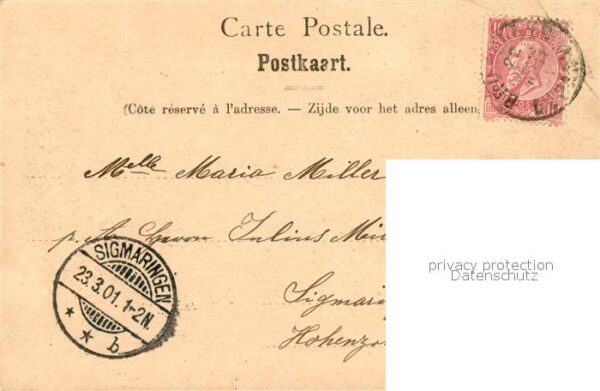 Carte Postale.
Postkaart.
(Côté réservé à l'adresse. — Zijde voor het adres alleen
Melle Maria Miller
Julius
Sigmarin
Hohenzo
SIGMARINGEN
23.3.01. 1-2N.
* * b
privacy protection
Datenschutz